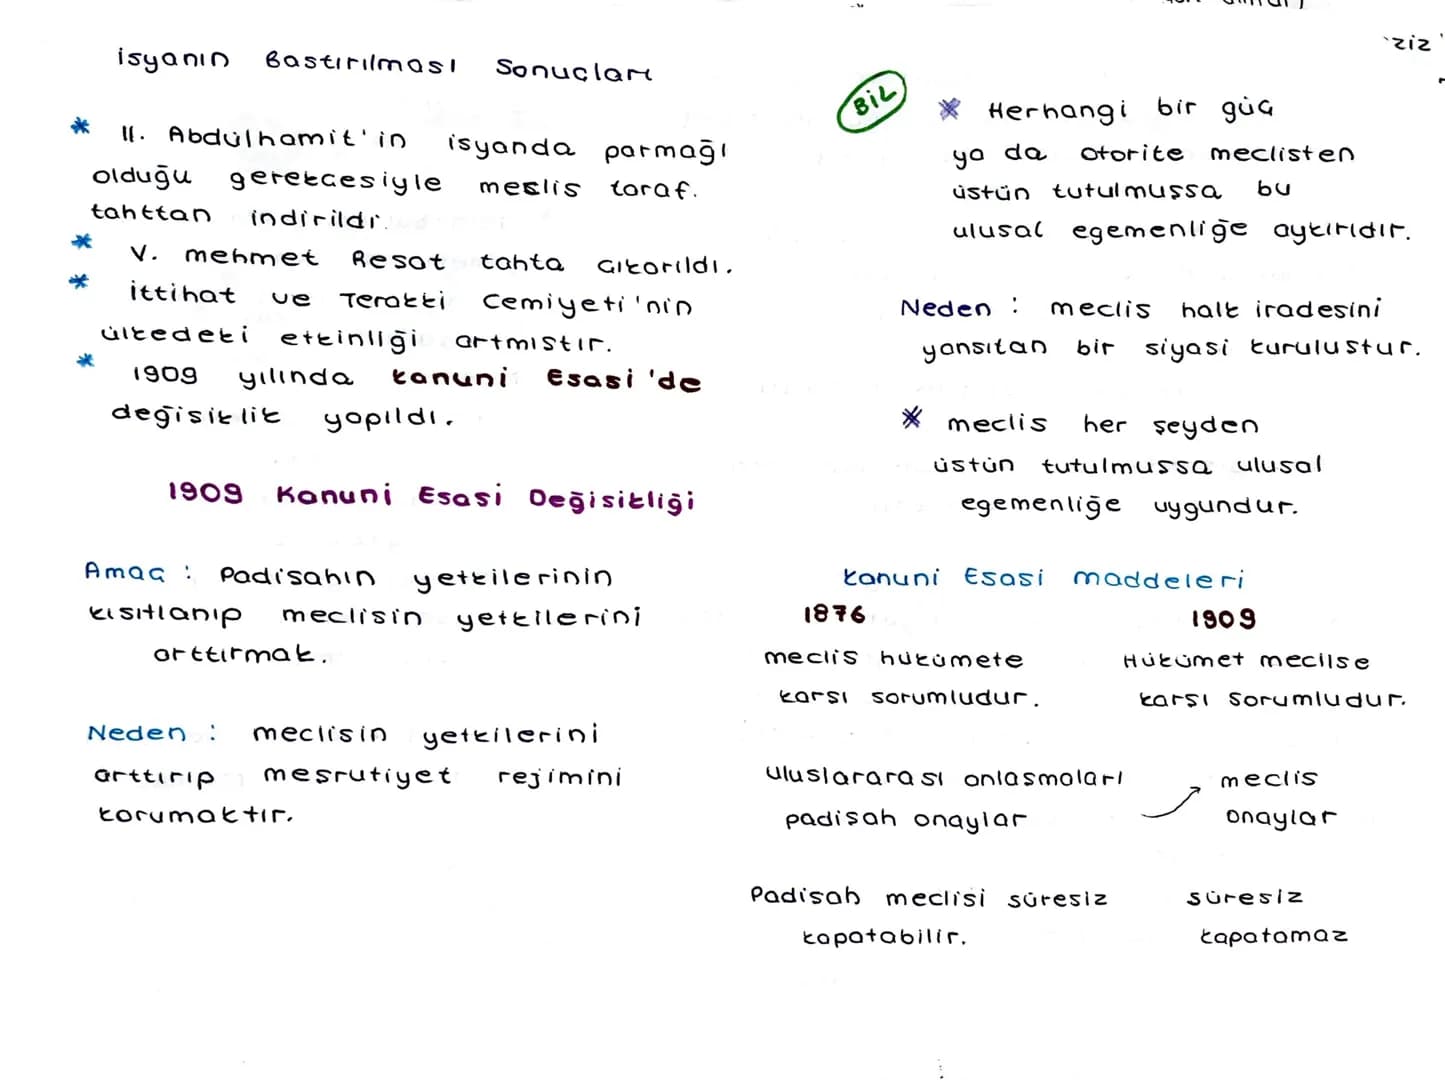 isyanın Bastırılması Sonuçları
* II. Abdülhamit'in isyanda parmağı
olduğu gerekçesiyle meclis taraf.
tahttan indirildi.
* V. mehmet Resat tahta çıkarıldı.
* ittihat ve Terakki Cemiyeti'nin
ülkedeki etkinliği artmıstır.
* 1909 yılında kanuni Esasi'de
değisiklik yapıldı.
1909 Kanuni Esasi Değisikliği
Amaç : Padisahın yetkilerinin
kısıtlanıp meclisin yetkilerini
arttırmak.
Neden : meclisin yetkilerini
arttırıp meşrutiyet rejimini
korumaktır.
BİL
* Herhangi bir güç
ya da otorite meclisten
üstün tutulmuşsa bu
ulusal egemenliğe aykırıdır.
Neden : meclis halk iradesini
yansıtan bir siyasi kurulustur.
* meclis her şeyden
üstün tutulmussa ulusal
egemenliğe uygundur.
kanuni Esasi maddeleri
1876 1909
meclis hukümete Hükümet meclise
karsı sorumludur. karşı sorumludur.
uluslararası anlasmaları meclis
padişah onaylar onaylar
Padisah meclisi süresiz süresiz
kapatabilir. kapatamaz